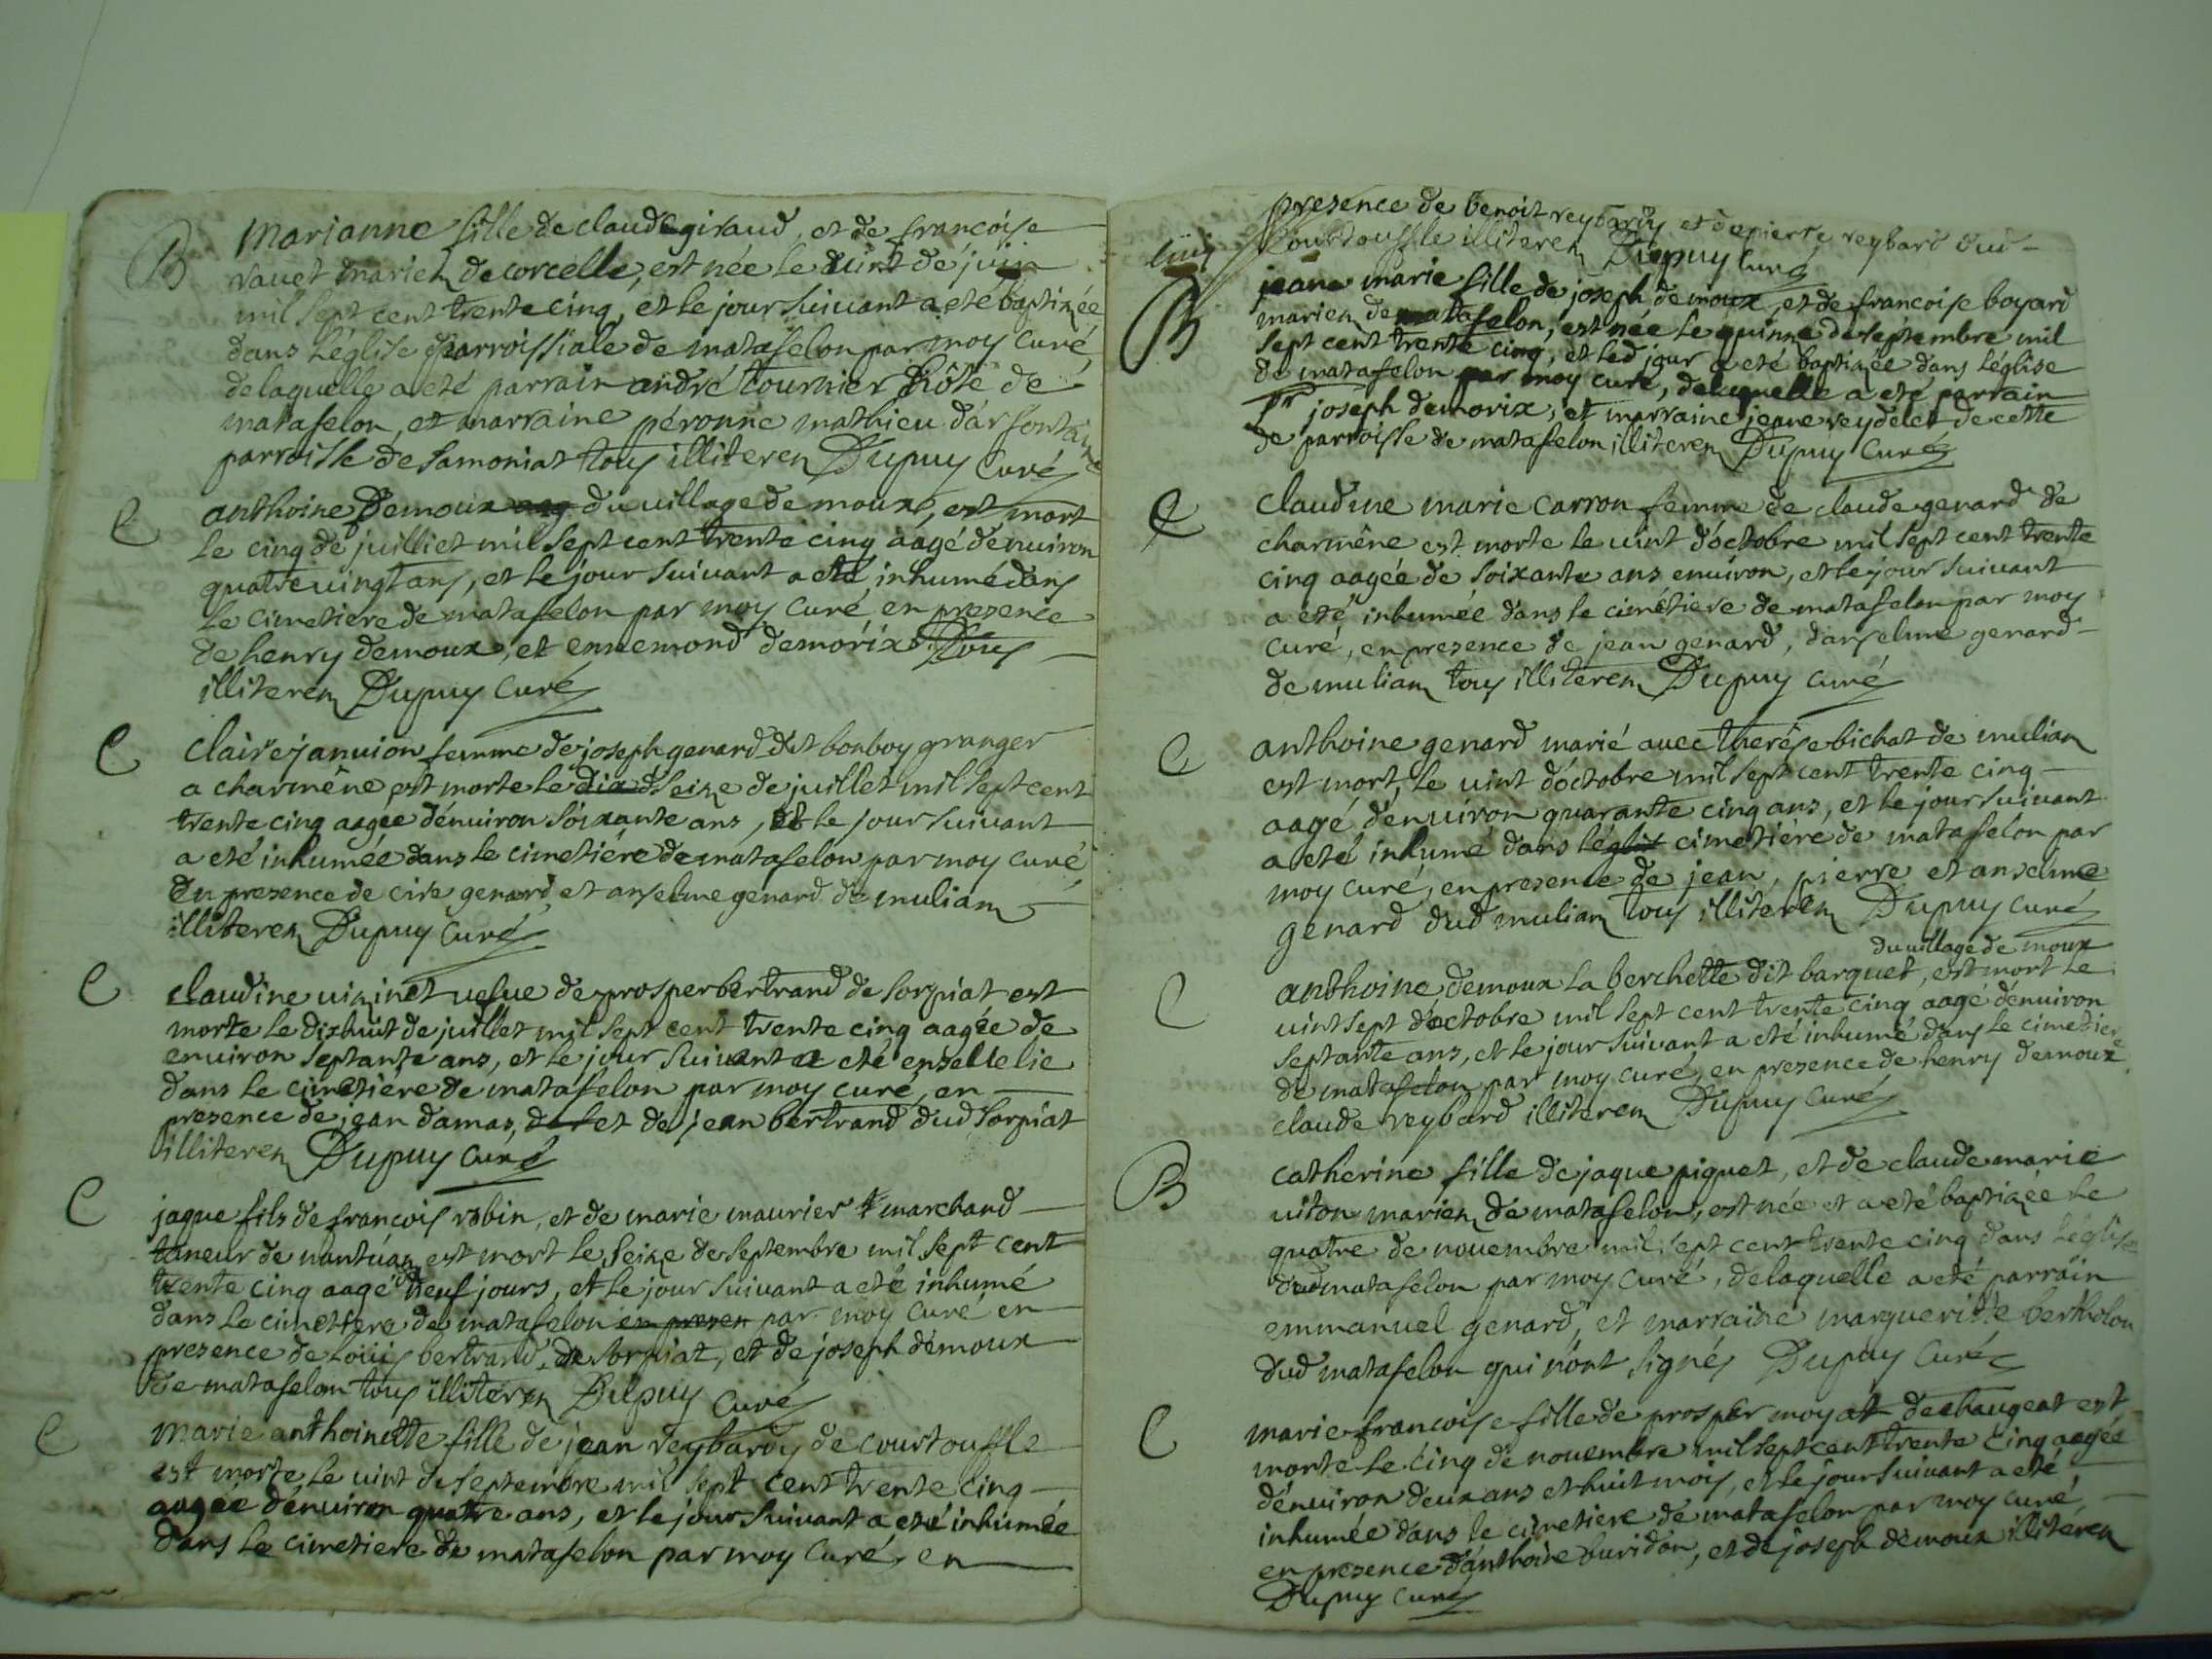 B
Marianne fille de claude giraud, et de francoise
ravet mariez de corcelle, est née le vint de juin
mil sept cent trente cinq, et le jour suivant a eté baptizée
dans l'église parroissiale de matafelon par moy curé,
de laquelle a eté parrain andré tournier hôte de
matafelon, et marraine péronne mathieu d'arfontaine
parroisse de samoniat tous illiterez Dupuy Curé
C
anthoine Demoux aag du village de moux, est mort
le cinq de juilliet mil sept cent trente cinq aagé denuiron
quatre uingt ans, et le jour suivant a eté inhumé dans
le cimetiere de matafelon par moy curé, en presence
de henry demoux, et ennemond demorix tous
illiterez Dupuy Curé
C
Claire januion femme de joseph genard dit bonboy granger
a charmêne est morte le dix d seize de juillet mil sept cent
trente cinq aagée d'enuiron soixante ans, et le jour suivant
a eté inhumée dans le cimetiére de matafelon par moy curé
en presence de cire genard et anselme genard de mulian
illiterez Dupuy Curé
C
claudine uizinet uefue de prosper bertrand de sorpiat est
morte le dixhuit de juillet mil sept cent trente cinq aagée de
enuiron septante ans, et le jour suivant a eté enseuelie
dans le cimetiére de matafelon par moy curé, en
presence de jean damas, et de jean bertrand dud sorpiat
illiterez Dupuy Curé
C
jaque fils de francois robin, et de marie maurier marchand
taneur de nantuaz est mort le seize de septembre mil sept cent
trente cinq aagé de neuf jours, et le jour suivant a eté inhumé
dans le cimetiere de matafelon en presen par moy curé en
presence de louis bertrand, de sorpiat, et de joseph démoux
de matafelon tous illiterez Dupuy Curé
C
Marie anthoinette fille de jean reybardy de courtouffle
est morte le vint de septembre mil sept cent trente cinq
aagée d'enuiron quatre ans, et le jour suivant a eté inhumée
dans le cimetiere de matafelon par moy curé, en
presence de benoit reybardy et de pierre reybard dud
Courtouffle illiterez Dupuy Curé
B
jeane marie fille de joseph de moux, et de francoise boyard
mariez de matafelon, est née le quinze de septembre mil
sept cent trente cinq, et led jour a eté baptizée dans l'église
de matafelon par moy curé, de laquelle a eté parrain
joseph demorix, et marraine jeane reydelet de cette
de parroisse de matafelon illiterez Dupuy Curé
C
Claudine marie Carron femme de claude genard de
charmêne est morte le uint d'octobre mil sept cent trente
cinq aagée de soixante ans enuiron, et le jour suivant
a eté inhumée dans le cimétiere de matafelon par moy
curé, en presence de jean genard, d'anselme genard
de mulian tous illiterez Dupuy Curé
C
anthoine genard marié auec therése bichat de mulian
est mort, le uint d'octobre mil sept cent trente cinq
aagé d'enuiron quarante cinq ans, et le jour suivant
a eté inhumé dans léglise cimetiére de matafelon par
moy curé, en presence de jean, pierre et anselme
genard dud mulian tous illiterez Dupuy Curé
du uillage de moux
C
anthoine demoux la berchette dit barquet, est mort le
uint sept d'octobre mil sept cent trente cinq aagé d'enuiron
septante ans, et le jour suivant a eté inhumé dans le cimetiere
de matafelon par moy curé, en presence de henry demoux
claude reybard illiterez Dupuy Curé
B
Catherine fille de jaque piquet, et de claude marie
uiton mariez de matafelon, est née et a eté baptizée le
quatre de nouembre mil sept cent trente cinq dans l'église
dud matafelon par moy curé, de laquelle a eté parrain
emmanuel genard, et marraine margueritte bertholon
dud matafelon qui n'ont signés Dupuy Curé
C
marie francoise fille de prosper moyat de chaugeat est
morte le cinq de nouembre mil sept cent trente cinq aagée
d'enuiron deux ans et huit mois, et le jour suivant a eté
inhumée dans le cimetiere de matafelon par moy curé,
en presence d'anthoine buridon, et de joseph demoux illiterez
Dupuy Curé